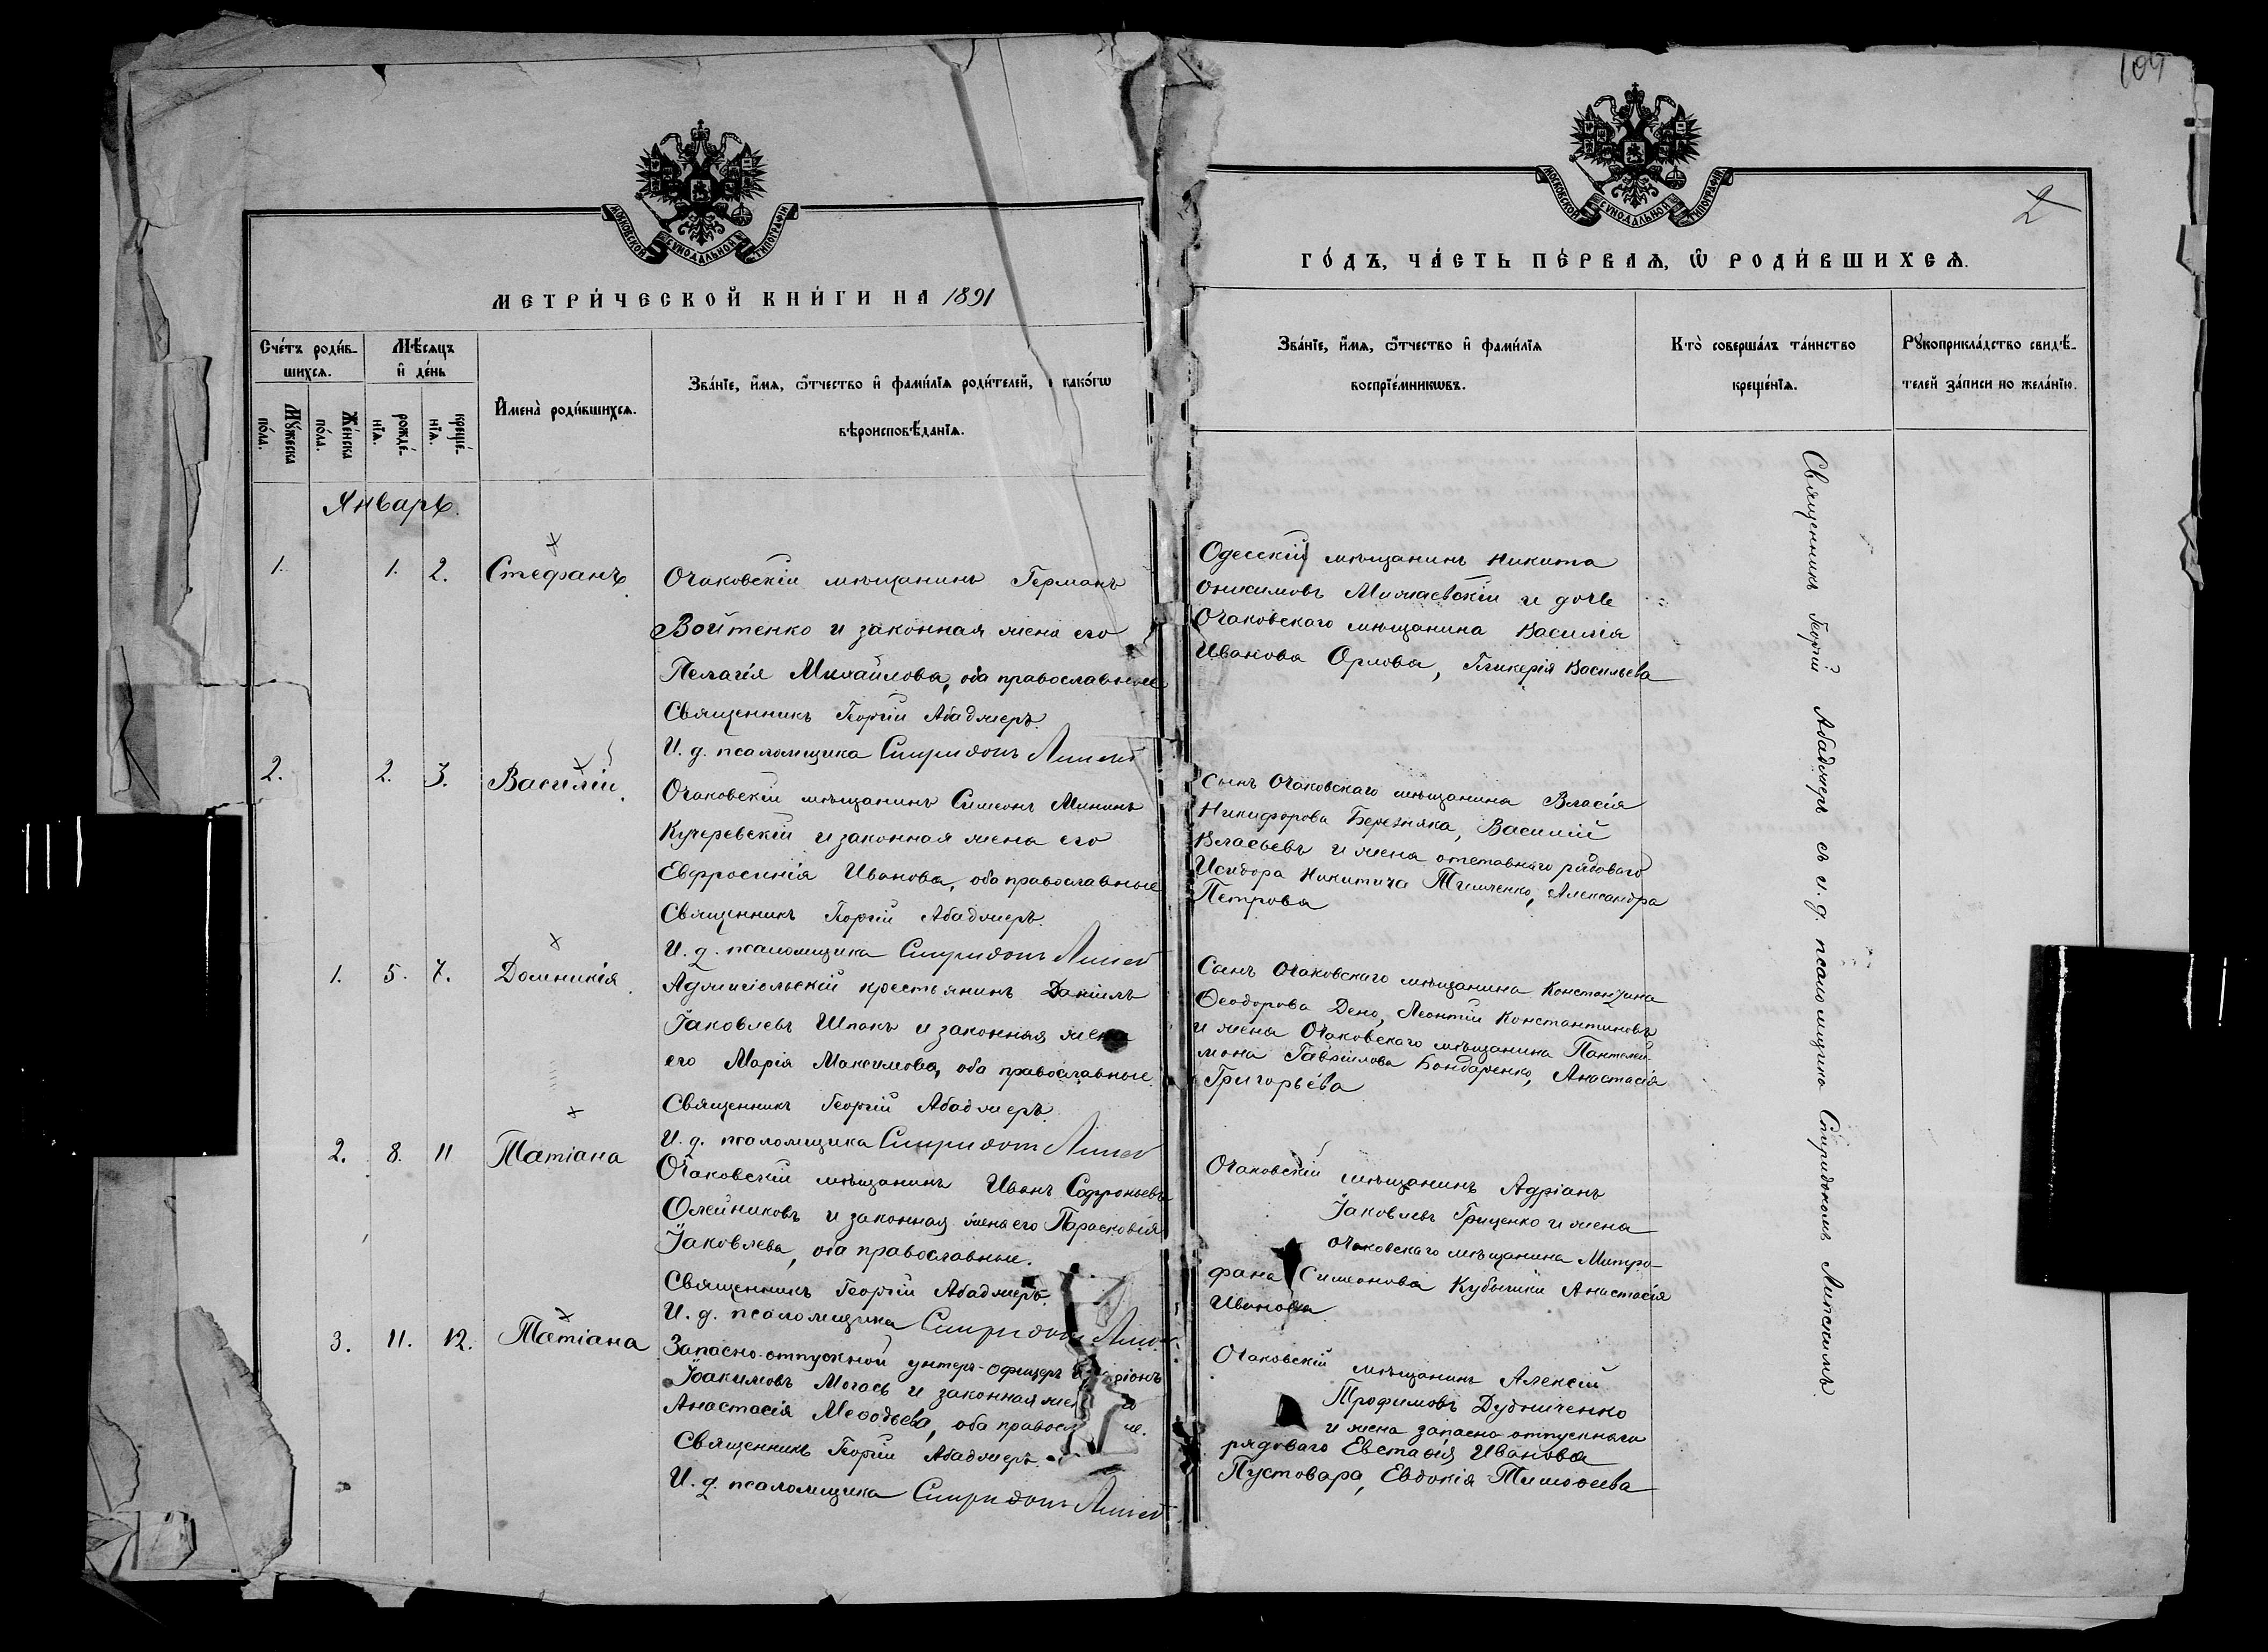 109
2
МОСКОВСКОЙ СѴНОДАЛЬНОЙ ТИПОГРАФІИ
МЕТРИ́ЧЕСКОЙ КНИ́ГИ НА 1891
Сче́тъ роди́в-
шихсѧ.
Мѣ́сѧцъ
и҆ де́нь
Мꙋ́жеска
по́ла.
Же́нска
по́ла.
рожде́-
нїѧ.
креще́-
нїѧ.
И҆мена̀ роди́вшихсѧ.
Зва́нїе, и҆́мѧ, ѻ҆́тчество и҆ фами́лїѧ роди́телей, и како́гѡ
вѣроисповѣ́данїѧ.
Январь.
1. 1. 2. Стефанъ.
Очаковскій мѣщанинъ Германъ
Войтенко и законная жена его
Пелагія Михайлова, оба православные
Священникъ Георгій Абаджеръ.
И. д. псаломщика Спиридонъ
2. 2. 3. Василій.
Очаковскій мѣщанинъ Симеонъ Мининъ
Кучеревскій и законная жена его
Евфросинія Иванова, оба православные
Священникъ Георгій Абаджеръ.
И. д. псаломщика Спиридонъ
1. 5. 7. Домникія.
крестьянинъ Даніилъ
Іаковлевъ Шпакъ и законная жена
его Марія Максимова, оба православные.
Священникъ Георгій Абаджеръ.
И. д. псаломщика Спиридонъ
2. 8. 11 Татіана
Очаковскій мѣщанинъ Иванъ Софроньевъ
Олейниковъ и законная жена его Парасковія
Іаковлева, оба православные.
Священникъ Георгій Абаджеръ.
И. д. псаломщика Спиридонъ
3. 11. 12. Татіана
Запасно-отпускной унтеръ-офицеръ
Іоакимовъ Могась и законная
Анастасія Меѳодьева, оба
Священникъ Георгій Абаджеръ.
И. д. псаломщика Спиридонъ
МОСКОВСКОЙ СѴНОДАЛЬНОЙ ТИПОГРАФІИ
ГО́ДЪ, ЧА́СТЬ ПЕ́РВАѦ, Ѡ҆ РОДИ́ВШИХСѦ.
Зва́нїе, и҆́мѧ, ѻ҆́тчество и҆ фами́лїѧ
воспрїе́мникѡвъ.
Кто̀ соверша́лъ та́инство
креще́нїѧ.
Рꙋкоприкла́дство свидѣ́-
телей за́писи по жела́нїю.
Одесскій мѣщанинъ Никита
Онисимовъ и дочь
Очаковскаго мѣщанина Василія
Иванова Орлова, Гликерія Васильева
Сынъ Очаковскаго мѣщанина Власія
Никифорова Березняка, Василій
Власьевъ и жена отставнаго рядоваго
Исидора Никитича Тимченко, Александра
Петрова
Сынъ Очаковскаго мѣщанина Константина
Ѳеодорова Дено, Леонтій Константиновъ
и жена Очаковскаго мѣщанина Пантелей-
мона Гавріилова Бондаренко, Анастасія
Григорьева
Очаковскій мѣщанинъ Адріанъ
Іаковлевъ Гриценко и жена
Очаковскаго мѣщанина Митро-
фана Симеонова Кубышки Анастасія
Иванова
Очаковскій мѣщанинъ Алексій
Трофимовъ Дудниченко
и жена запасно отпускнаго
рядоваго Евстаѳія Иванова
Пустовара, Евдокія Тимоѳеева
Священникъ Георгій Абаджеръ съ и. д. псаломщика Спиридономъ Липскимъ.